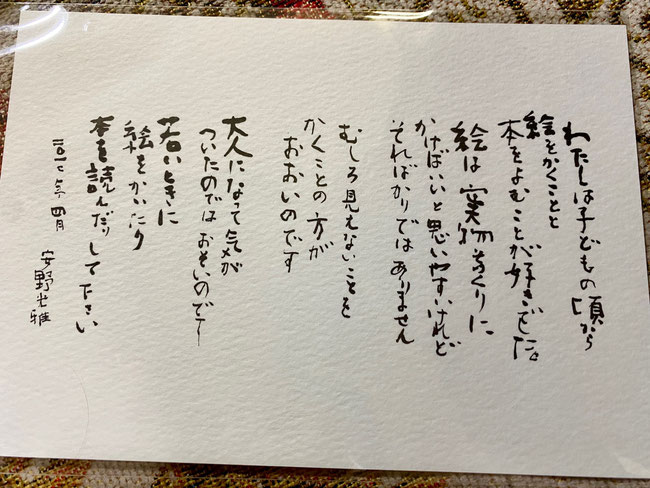 わたしは子どもの頃から
絵をかくことと
本をよむことが好きでした。
絵は実物そっくりに
かけばいいと思いやすいけれど
そればかりではありません
むしろ見えないことを
かくことの方が
おおいのです
大人になって気が
ついたのではおそいのです
若いときに
絵をかいたり
本を読んだりして下さい
二〇一七年四月
安野光雅